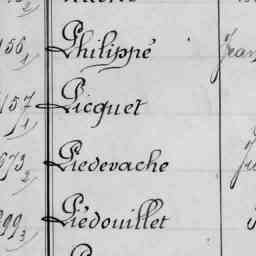 156/1 Philippé Jean
157/1 Picquet
673/2 Piedevache
299/3 Piédouillet